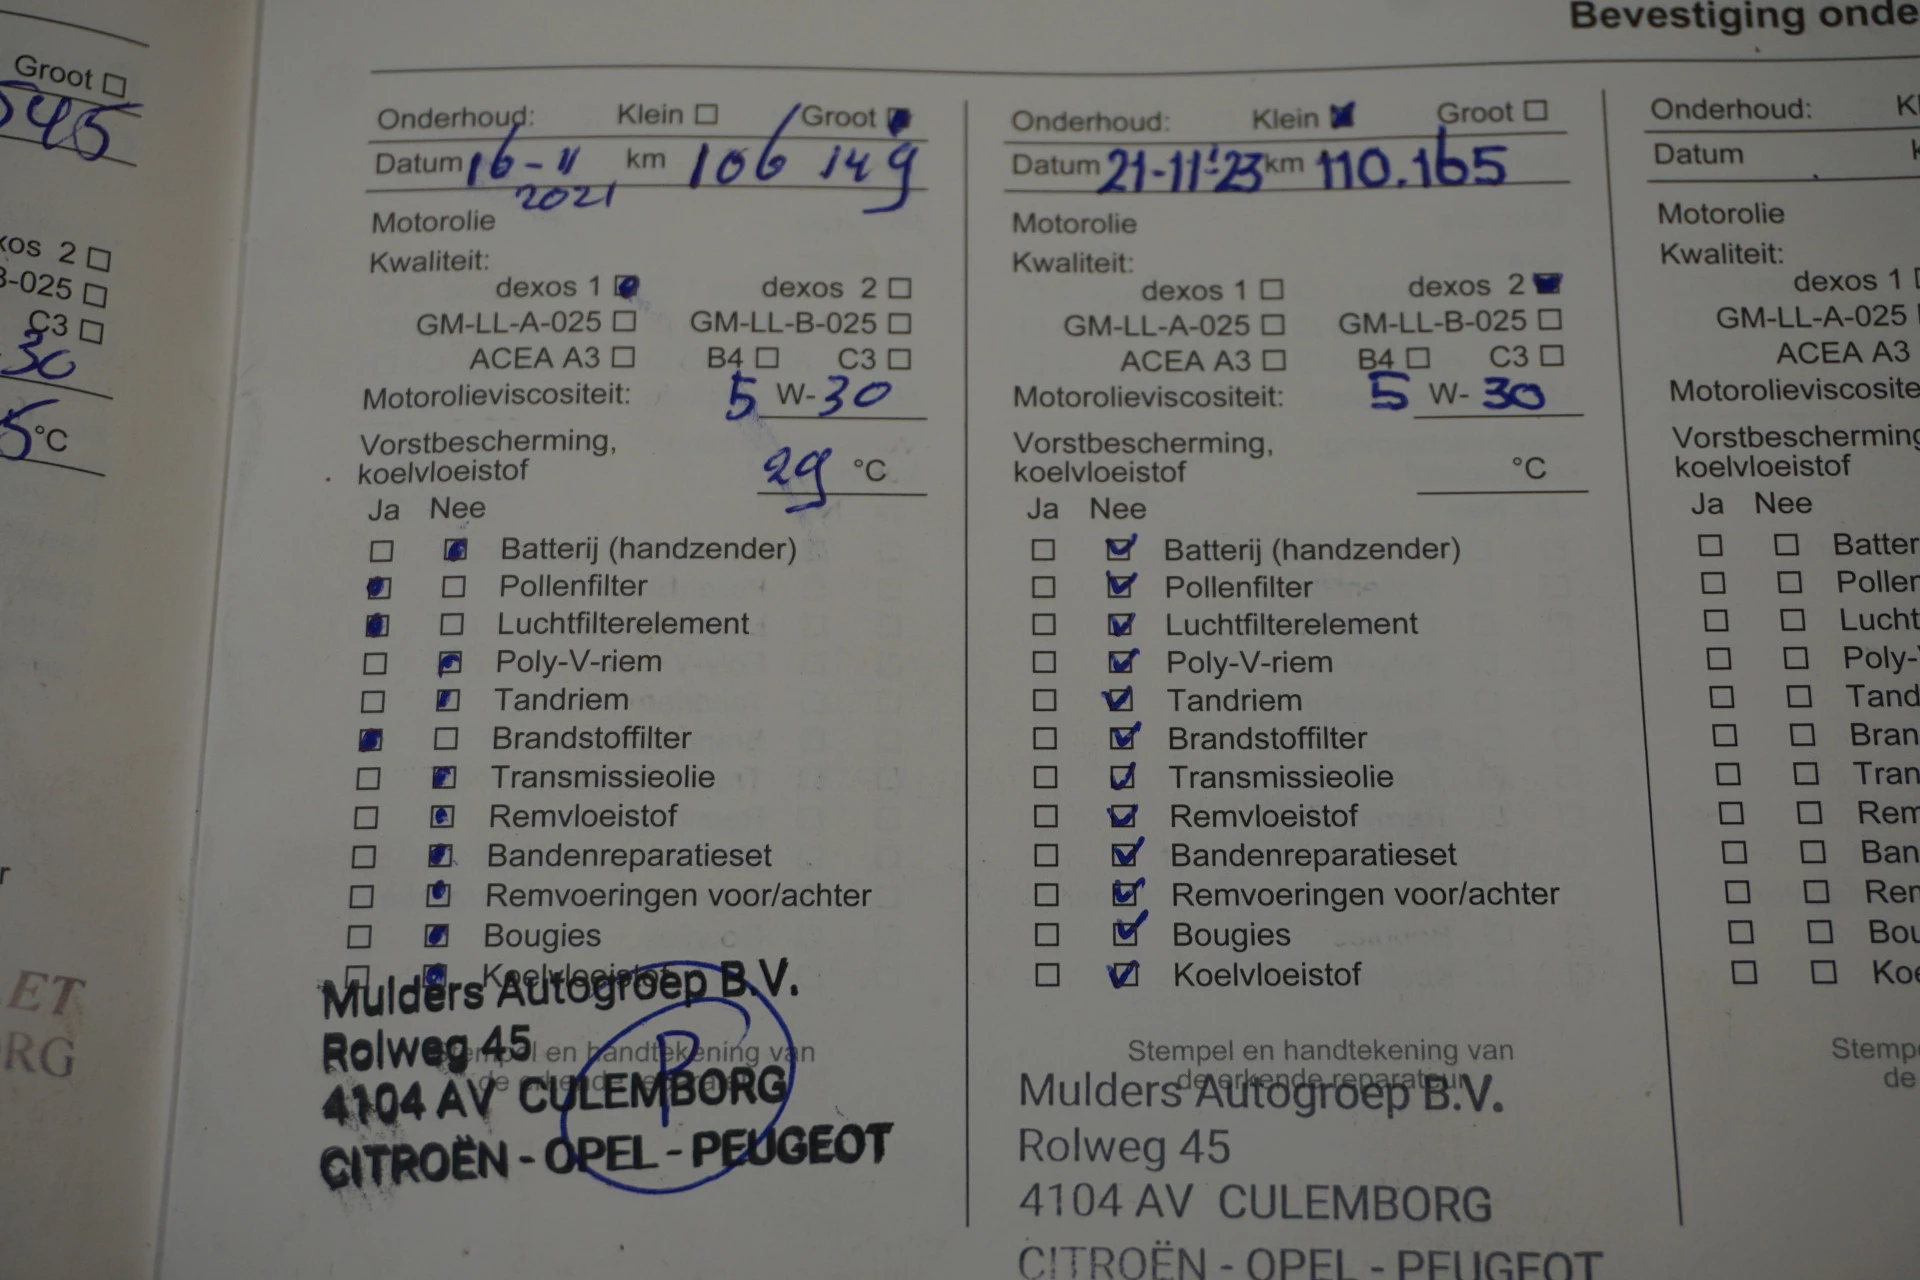 Groot
545
xos 2
B-025
C3
30
5 °C
ET
RG
Bevestiging onde
Onderhoud: Klein Groot
Datum 16-11 km 106 149
2021
Motorolie
Kwaliteit:
dexos 1 dexos 2
GM-LL-A-025 GM-LL-B-025
ACEA A3 B4 C3
Motorolieviscositeit: 5 W-30
Vorstbescherming,
koelvloeistof 29 °C
Ja Nee
Batterij (handzender)
Pollenfilter
Luchtfilterelement
Poly-V-riem
Tandriem
Brandstoffilter
Transmissieolie
Remvloeistof
Bandenreparatieset
Remvoeringen voor/achter
Bougies
Koelvloeistof
Stempel en handtekening van
de erkende reparateur
Mulders Autogroep B.V.
Rolweg 45
4104 AV CULEMBORG
CITROËN - OPEL - PEUGEOT
Onderhoud: Klein Groot
Datum 21-11-'23 km 110.165
Motorolie
Kwaliteit:
dexos 1 dexos 2
GM-LL-A-025 GM-LL-B-025
ACEA A3 B4 C3
Motorolieviscositeit: 5 W-30
Vorstbescherming,
koelvloeistof °C
Ja Nee
Batterij (handzender)
Pollenfilter
Luchtfilterelement
Poly-V-riem
Tandriem
Brandstoffilter
Transmissieolie
Remvloeistof
Bandenreparatieset
Remvoeringen voor/achter
Bougies
Koelvloeistof
Stempel en handtekening van
de erkende reparateur
Mulders Autogroep B.V.
Rolweg 45
4104 AV CULEMBORG
CITROËN - OPEL - PEUGEOT
Onderhoud: Kl
Datum
Motorolie
Kwaliteit:
dexos 1
GM-LL-A-025
ACEA A3
Motorolieviscosite
Vorstbescherming
koelvloeistof
Ja Nee
Batter
Pollen
Lucht
Poly-
Tand
Bran
Tran
Rem
Ban
Rem
Bou
Koe
Stemp
de